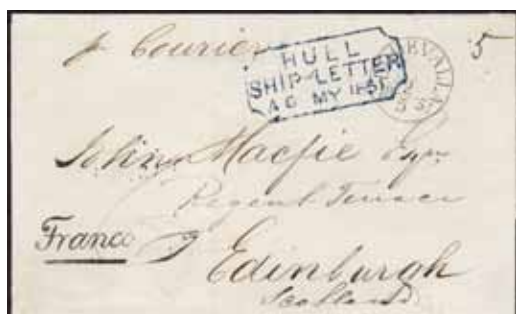 p Courier
HULL
SHIP-LETTER
A 6 MY 1851
5
John Macfie Esqr
Regent Terrace
Franco
Edinburgh
Scotland